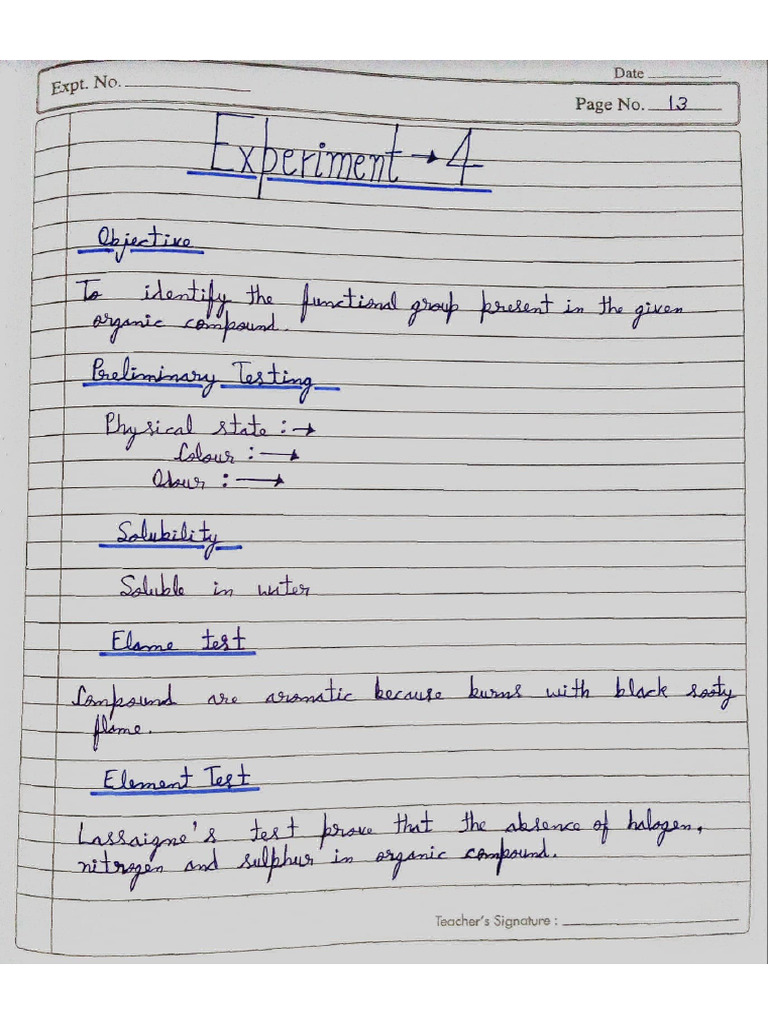 Expt. No.
Date
Page No. 13
Experiment → 4
Objective
To identify the functional group present in the given
organic compound.
Preliminary Testing
Physical state :→
Colour : →
Odour : →
Solubility
Soluble in water
Flame test
Compound are aromatic because burns with black sooty
flame.
Element Test
Lassaigne's test prove that the absence of halogen,
nitrogen and sulphur in organic compound.
Teacher's Signature :